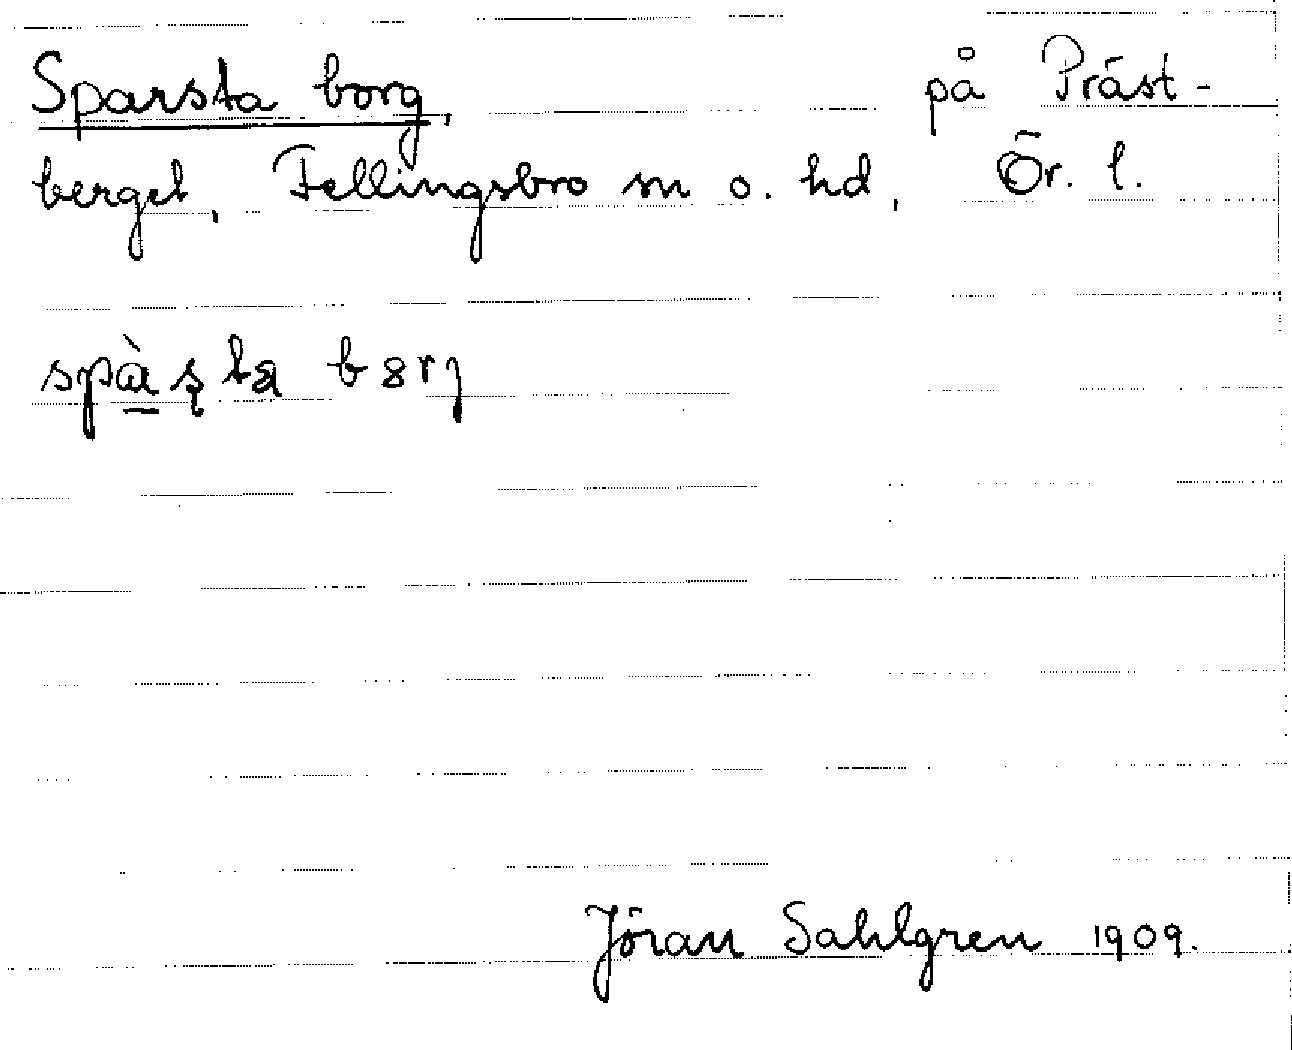 Sparsta borg, på Präst-
berget, Fellingsbro sn o. hd, Ör. l.
Jöran Sahlgren 1909.